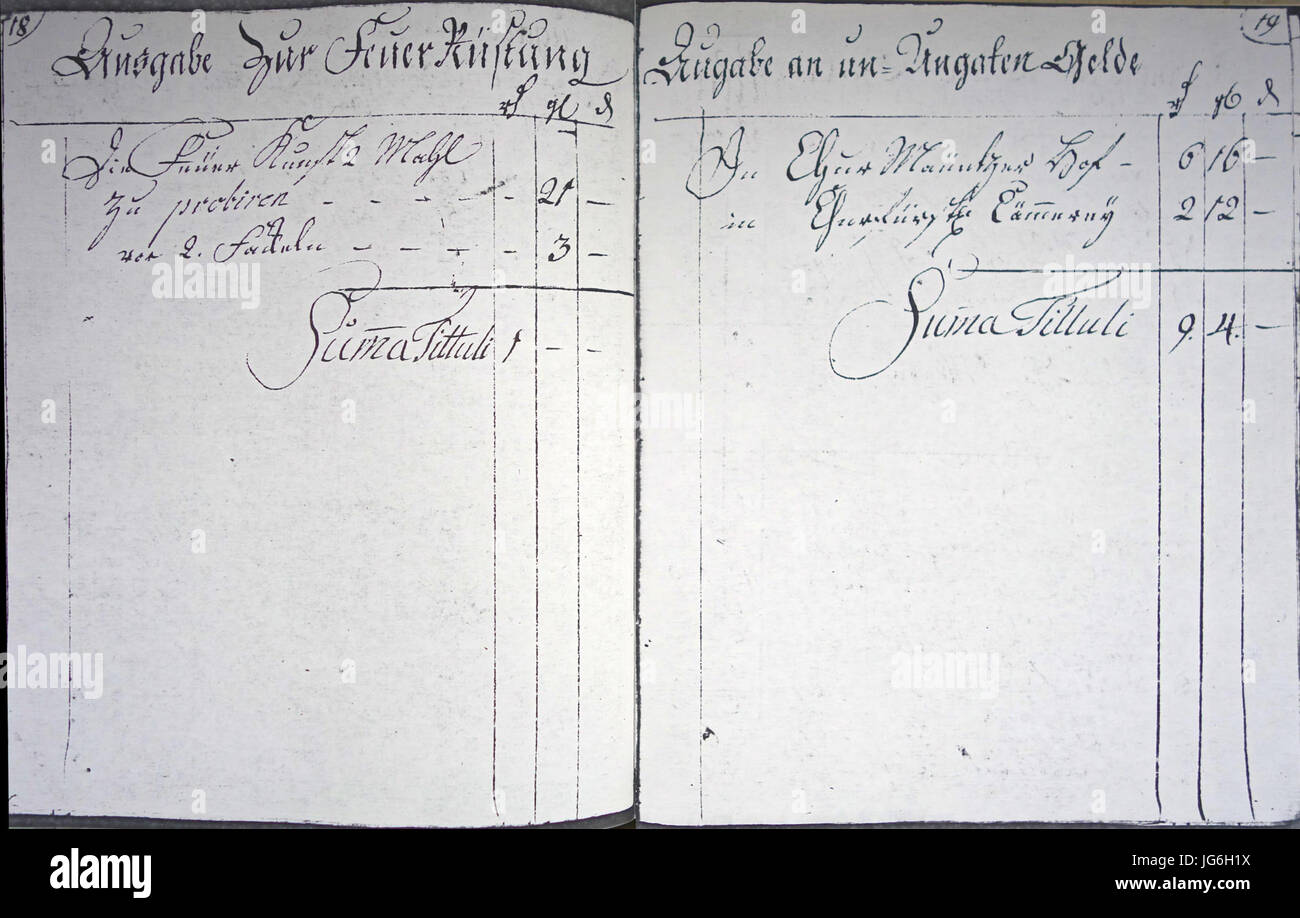 18
Ausgabe Zur Feuer Rüstung
rf gl d
Die Feüer Kunst 2 Mahl
zu probiren - - - - - 21 -
vor 2. Fackeln - - - - 3 -
Sum̄a Tittuli 1 - -
19
Augabe an un= Ungaten Gelde
rf gl d
In Chur Mäintzer Hof - 6 16 -
in Churfürstl Cäm̄erey 2 12 -
Sum̄a Tittuli 9. 4. -
alamy
alamy stock photo
a
JG6H1X
www.alamy.com